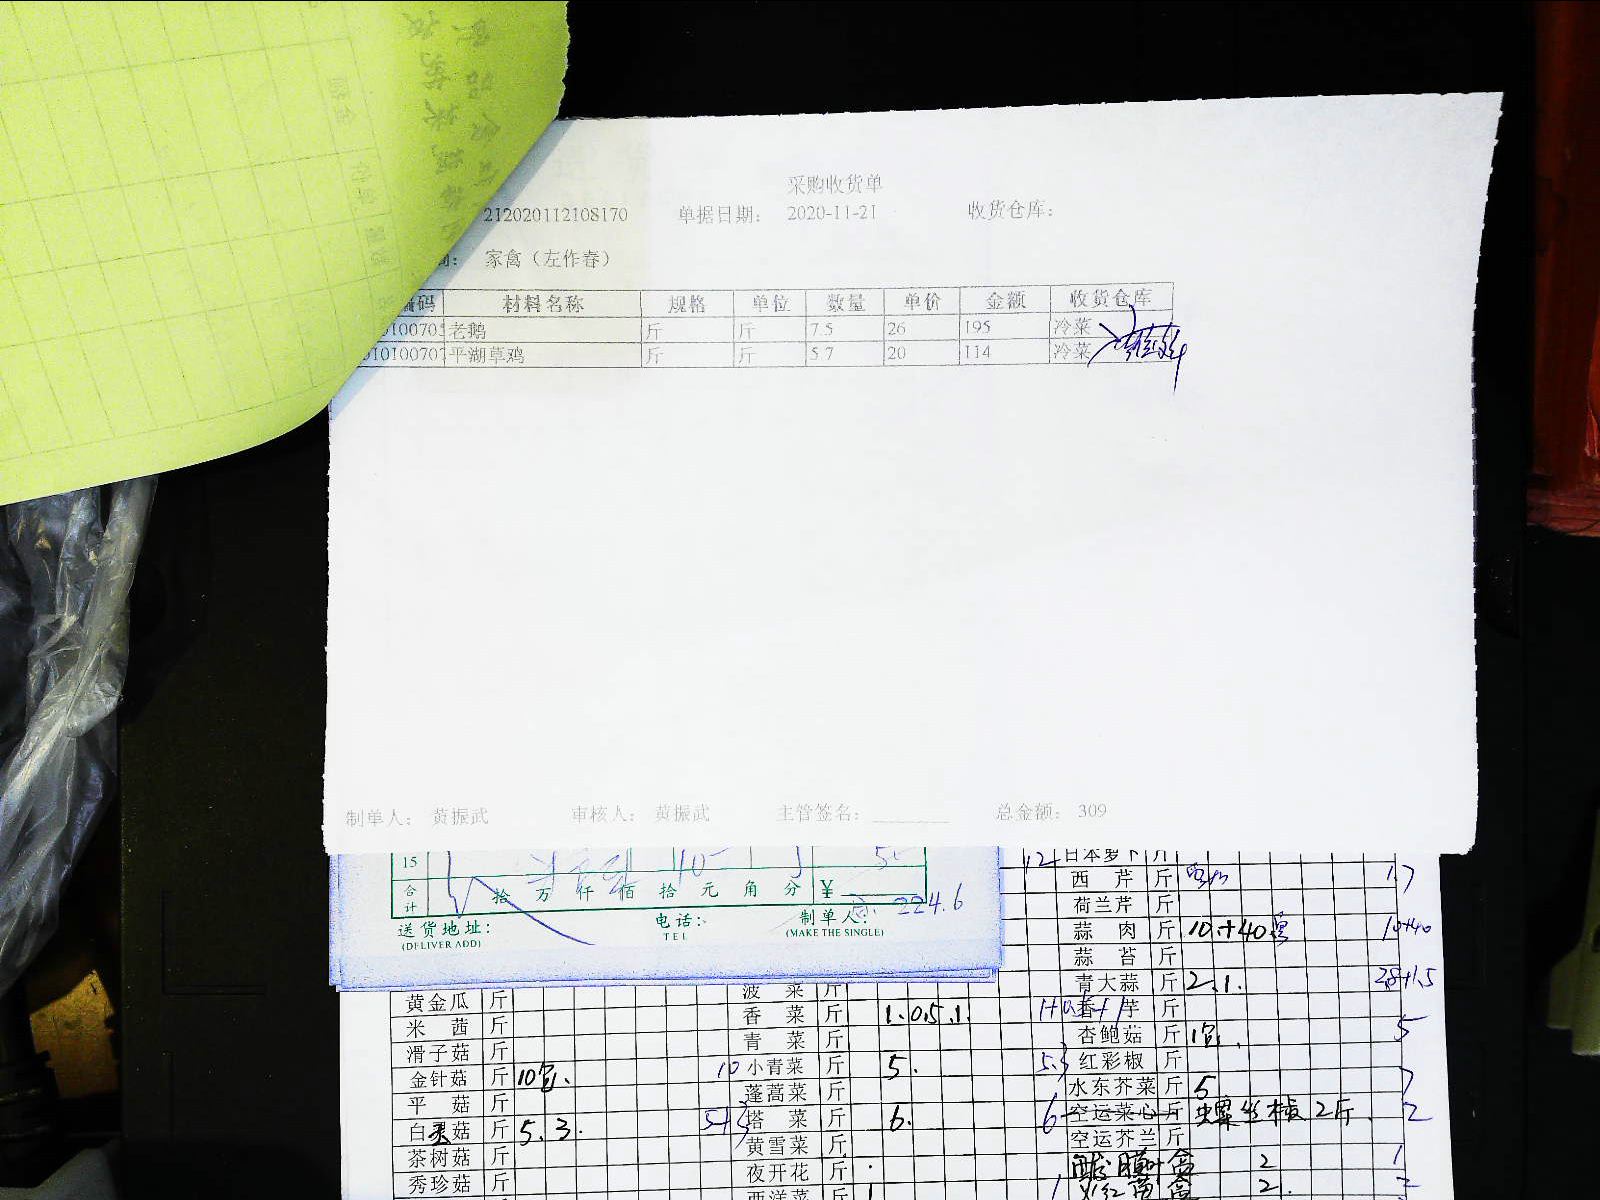 采购收货单
212020112108170 单据日期: 2020-11-21 收货仓库:
家禽（左作春）
编码 材料名称 规格 单位 数量 单价 金额 收货仓库
老鹅 斤 斤 7.5 26 195 冷菜
平湖草鸡 斤 斤 5.7 20 114 冷菜
制单人: 黄振武 审核人: 黄振武 主管签名: 总金额: 309
15
合计 拾 万 仟 佰 拾 元 角 分 ¥ 224.6
送货地址: 电话: 制单人:
(DELIVER ADD) TEL (MAKE THE SINGLE)
12 日本萝卜 斤
西芹 斤 1.7
荷兰芹 斤
蒜肉 斤 10.+40 10+40
蒜苔 斤
青大蒜 斤 2.1. 2.8+1.5
黄金瓜 斤 菠菜 斤 香芋 斤
米茜 斤 香菜 斤 1.0.5.1. 杏鲍菇 斤 5
滑子菇 斤 青菜 斤 红彩椒 斤
金针菇 斤 10 10 小青菜 斤 5. 5.3 水东芥菜 斤 5 7
平菇 斤 蓬蒿菜 斤 空运菜心 斤 螺丝椒2斤 2
白灵菇 斤 5.3. 5+3 塔菜 斤 6. 6 空运芥兰 斤
茶树菇 斤 黄雪菜 斤 盒 2 1
秀珍菇 斤 夜开花 斤 盒 2. 2
西洋菜 斤